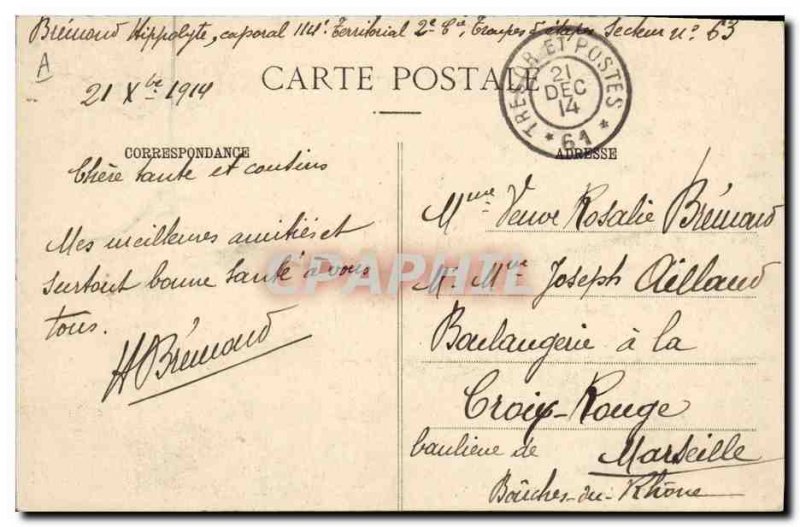 Brémond Hippolyte, caporal 114e Territorial 2e Cie, Troupes d'étapes Secteur n° 63
A
21 Xbre 1914
CARTE POSTALE
TRESOR ET POSTES
21
DEC
14
* 61 *
CORRESPONDANCE
ADRESSE
Chère tante et cousins
Mes meilleures amitiés et
surtout bonne santé à vous
tous.
HBrémond
Mme Veuve Rosalie Brémond
Mr Mme Joseph Aillaud
Boulangerie à la
Croix-Rouge
banlieue de Marseille
Bouches-du-Rhône
CPAPHIL